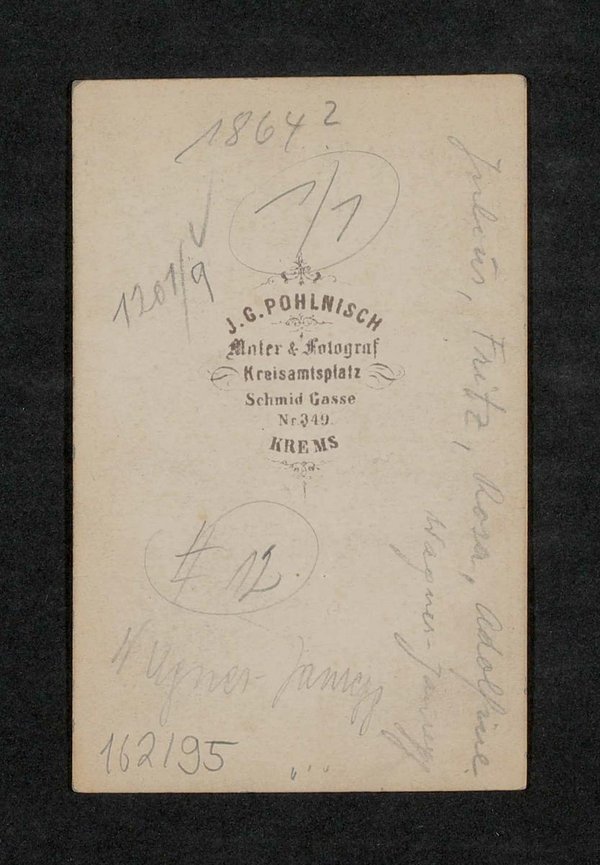 1864?
1/1
1201/9
J. G. POHLNISCH
Maler & Fotograf
Kreisamtsplatz
Schmid Gasse
Nr. 349.
KREMS
# 12
Wagner-Jauregg
162/95
Julius, Fritz, Rosa, Adolfine
Wagner-Jauregg